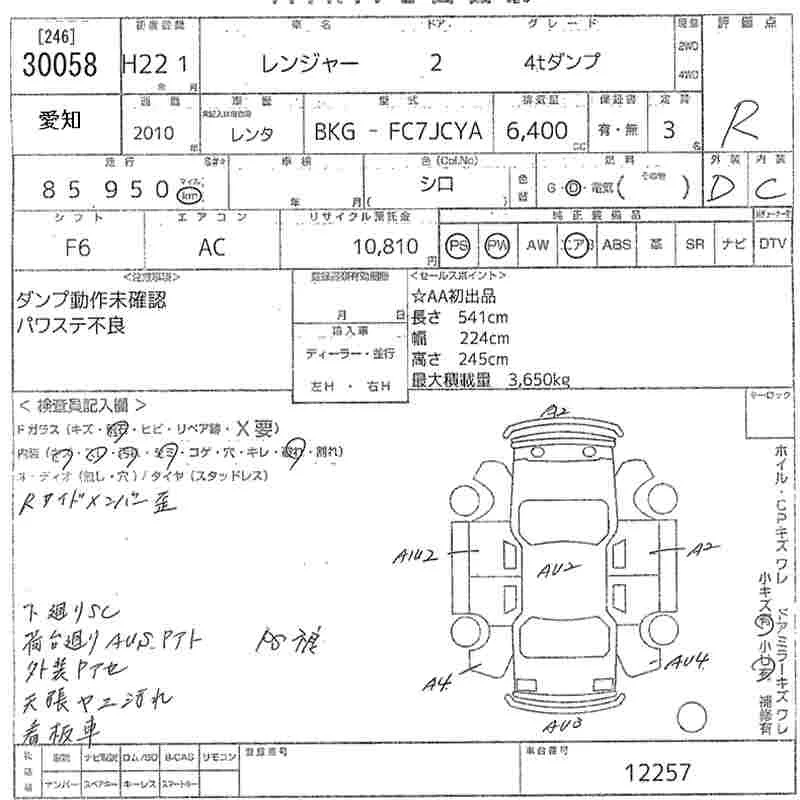 [246]
30058
H22 1
車名
レンジャー
ドア
2
グレード
4tダンプ
2WD
4WD
評価点
R
愛知
2010 年
車歴
レンタ
型式
BKG - FC7JCYA
排気量
6,400 CC
保証書
有・無
定員
3 名
外装
D
内装
C
走行
85950
マイル
km
車検
年 月
色(Col.No)
シロ
色替
燃料
G・D・電気( その他 )
シフト
F6
エアコン
AC
リサイクル預託金
10,810 円
純正装備品
PS PW AW エアB ABS 革 SR ナビ DTV
<注意事項>
ダンプ動作未確認
パワステ不良
月 日
輸入車
ディーラー・並行
左H ・ 右H
<セールスポイント>
☆AA初出品
長さ 541cm
幅 224cm
高さ 245cm
最大積載量 3,650kg
< 検査員記入欄 >
Fガラス(キズ・ ・ヒビ・リペア跡・X要)
コゲ・穴・キレ・ ・割れ)
(無し・穴) / タイヤ(スタッドレス)
Rサイドメンバー歪
下廻りSC
荷台廻りAUS.Pアト
外装Pアセ
天張ヤニ汚れ
看板車
キーロック
A2
A1U2
AU2
A2
A4
AU4
AU3
ホイル・CPキズワレ ドアミラーキズワレ
小キズ有 小 補修有
ナビ取説 ロム/SD B-CAS リモコン
ナンバー スペアキー キーレス スマートキー
登録番号
車台番号
12257